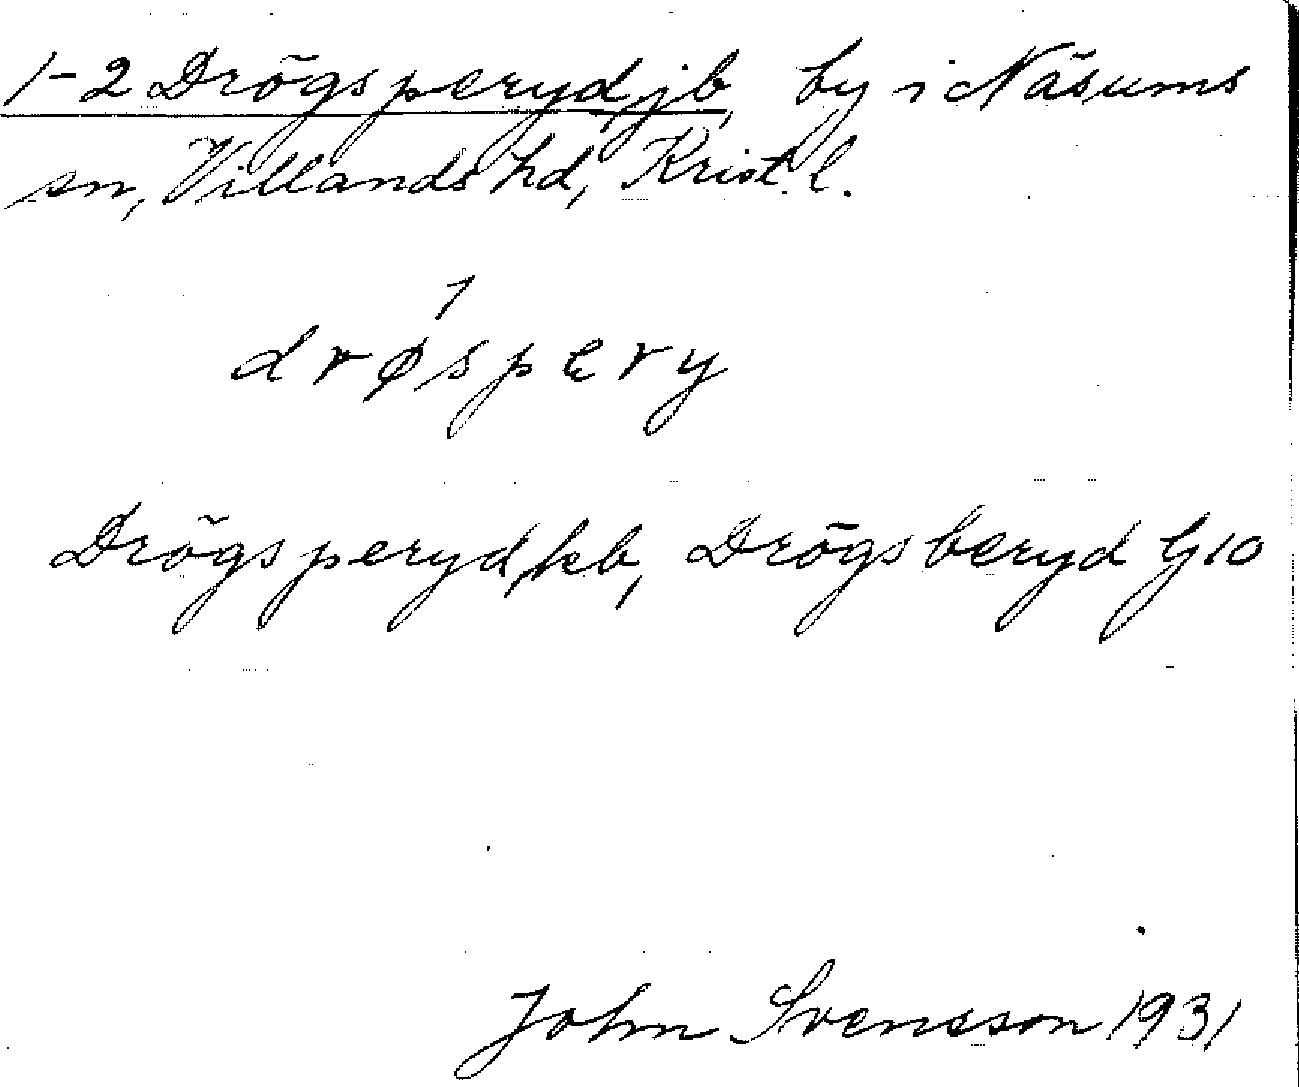 1-2 Drögsperyd, jb, by i Näsums
sn, Villands hd, Krist. l.
1
drøspery
Drögsperyd, kb, Drögsberyd G10
John Svensson 1931